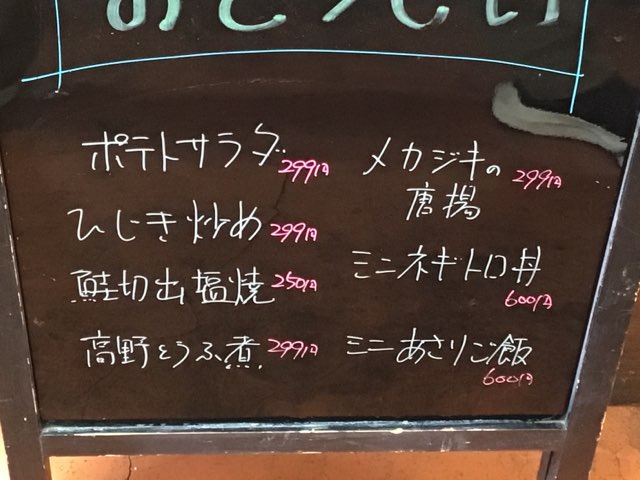 ポテトサラダ 299円
ひじき炒め 299円
鮭切出塩焼 250円
高野とうふ煮 299円
メカジキの
唐揚 299円
ミニネギトロ丼
600円
ミニあさりご飯
600円